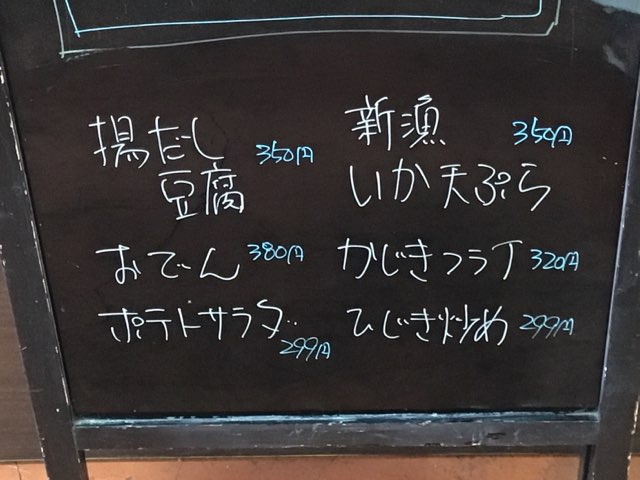 揚だし
豆腐 350円
おでん 380円
ポテトサラダ 299円
新漁 350円
いか天ぷら
かじきフライ 320円
ひじき炒め 299円